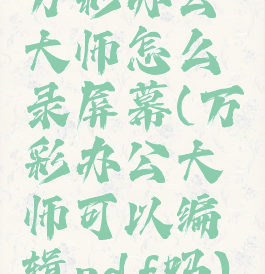 万彩办公
大师怎么
录屏幕(万
彩办公大
师可以编
辑pdf吗)